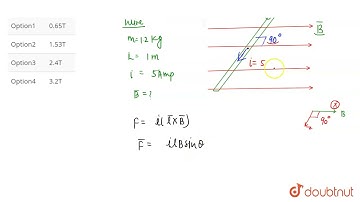 Option1 0.65T
Option2 1.53T
Option3 2.4T
Option4 3.2T
Wire
m=1.2 kg
L = 1m
i = 5Amp
B = ?
F = i(l×B)
F = ilBsinθ
90°
i = 5
B
90°
B
doubtnut